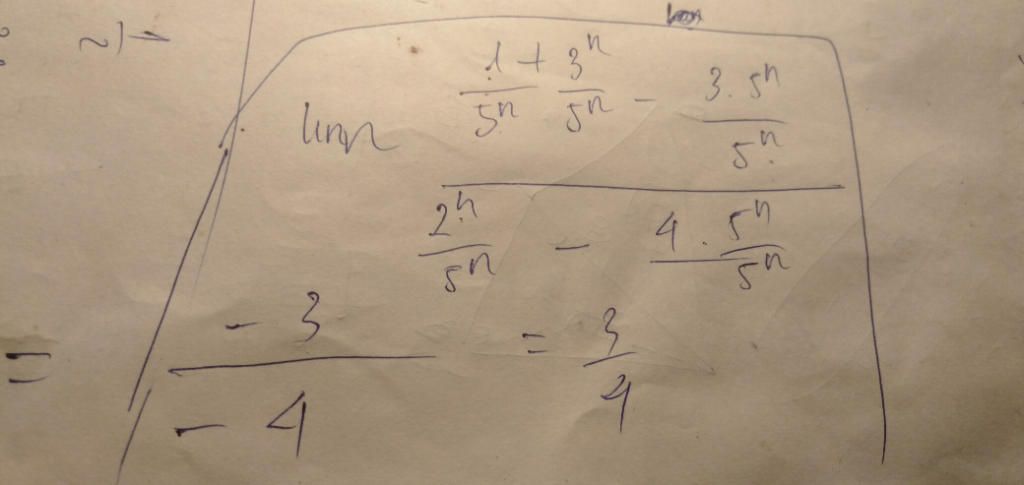 lim 1/5ⁿ + 3ⁿ/5ⁿ - 3·5ⁿ/5ⁿ
2ⁿ/5ⁿ - 4·5ⁿ/5ⁿ
= -3/-4 = 3/4